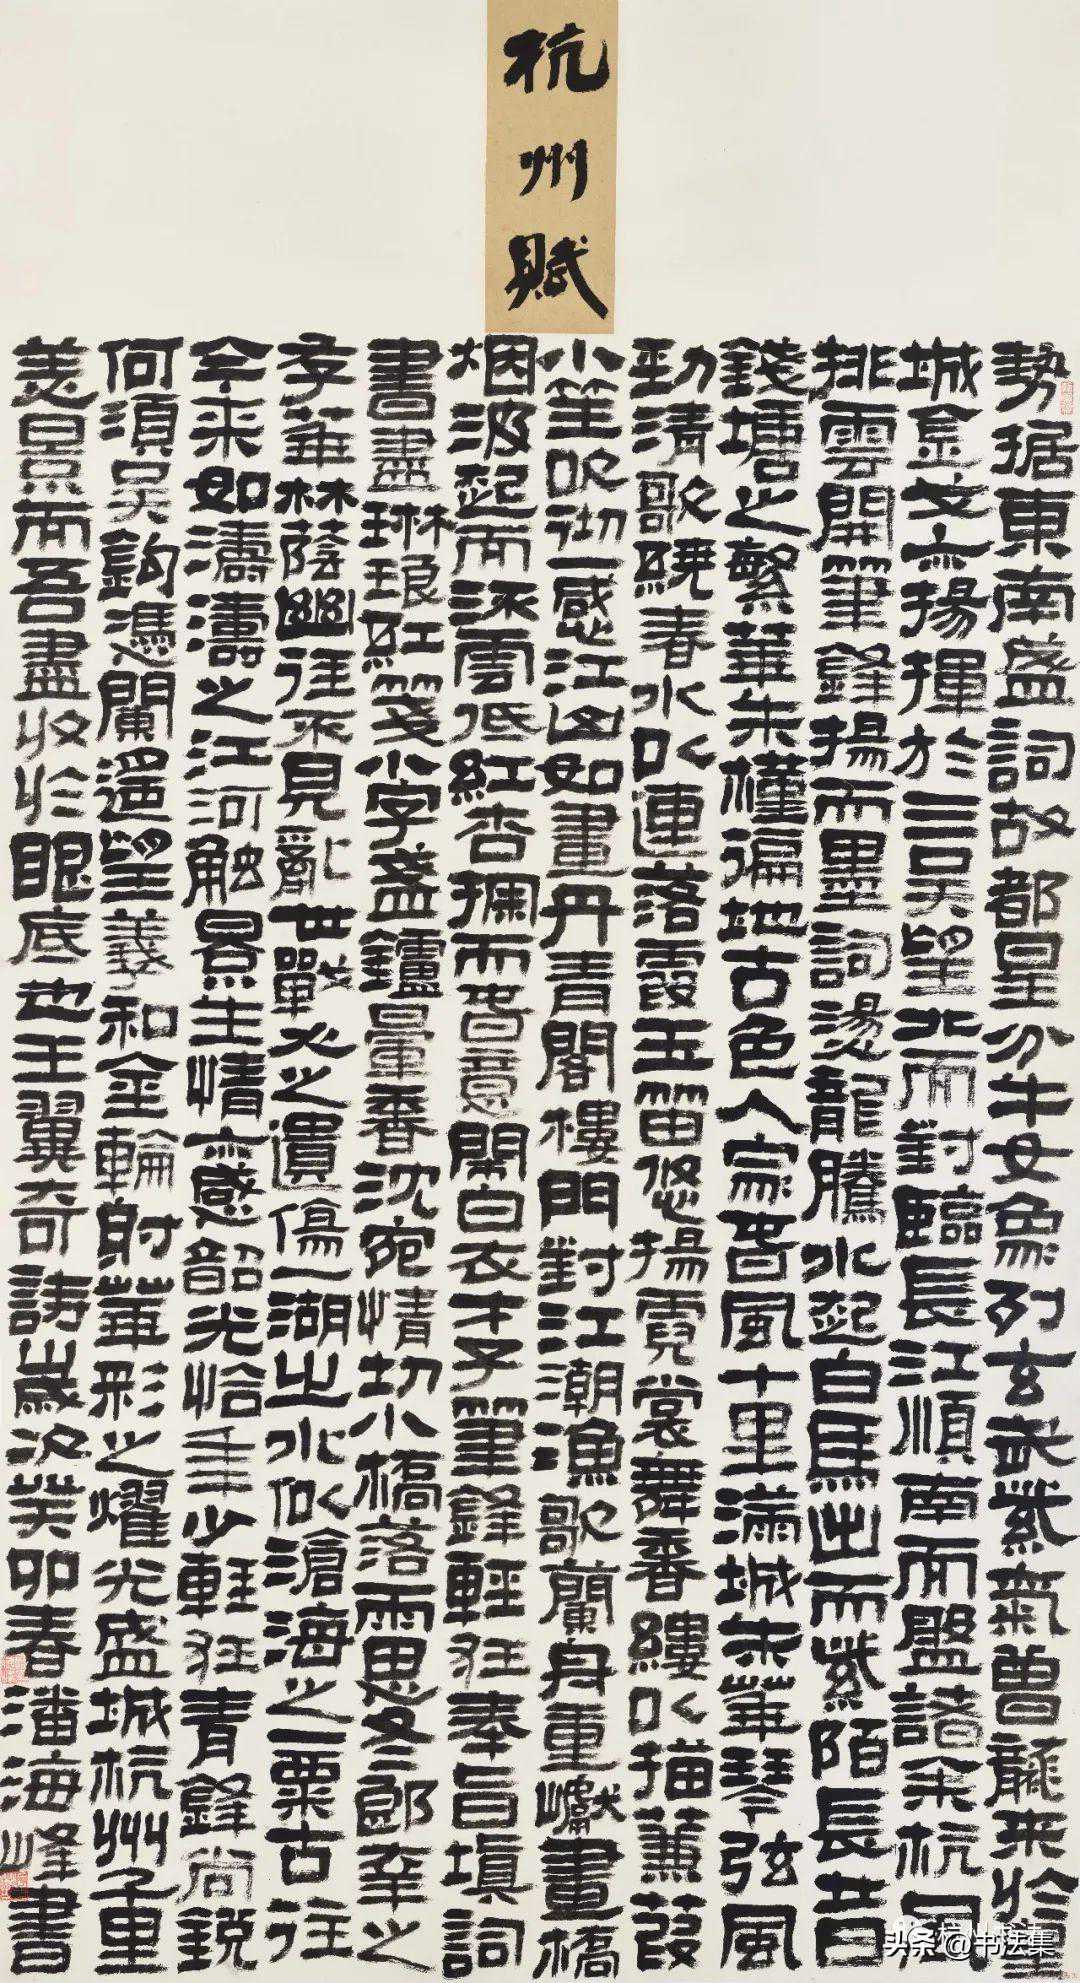 杭州賦
勢據東南盛詞故都星分牛女象列玄武紫氣曾龍來於皇
城金戈亦揚揮於三吳望北而對臨長江順南而盤諸余杭風
排雲開筆鋒揚而墨詞湯龍騰水起白馬出而紫陌長昔日
錢塘之繁華朱槿遍地古色人家香風十里滿城朱華琴弦風
勁清歌繞春水以連落霞玉笛悠揚霓裳舞香縷以描蒹葭
小笙吹徹一感江山如畫丹青閣樓門對江潮漁歌蘭舟重巘畫橋
烟波起而沐雲低紅杏攔而春意鬧白衣才子筆鋒輕狂奉旨填詞
書盡琳琅紅箋小字盞鑪暈香沈宛情切小橋落雨思冬郎辛之
年華林蔭幽往不見亂世戰火之遺傷一湖出水似滄海之一粟古往
今來如濤濤之江河觸景生情亦感韶光恰年少輕狂青鋒尚銳
何須吳鉤馮闌遥望羲和金輪射華彩之耀光盛城杭州重
美景而吾盡收於眼底也王翼奇詩歲次癸卯春潘海峰書
头条@书法集